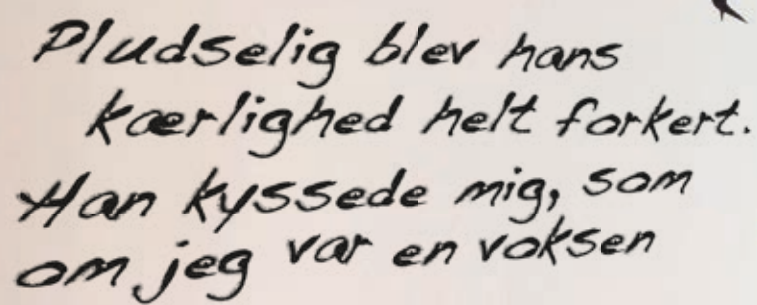 Pludselig blev hans
kærlighed helt forkert.
Han kyssede mig, som
om jeg var en voksen